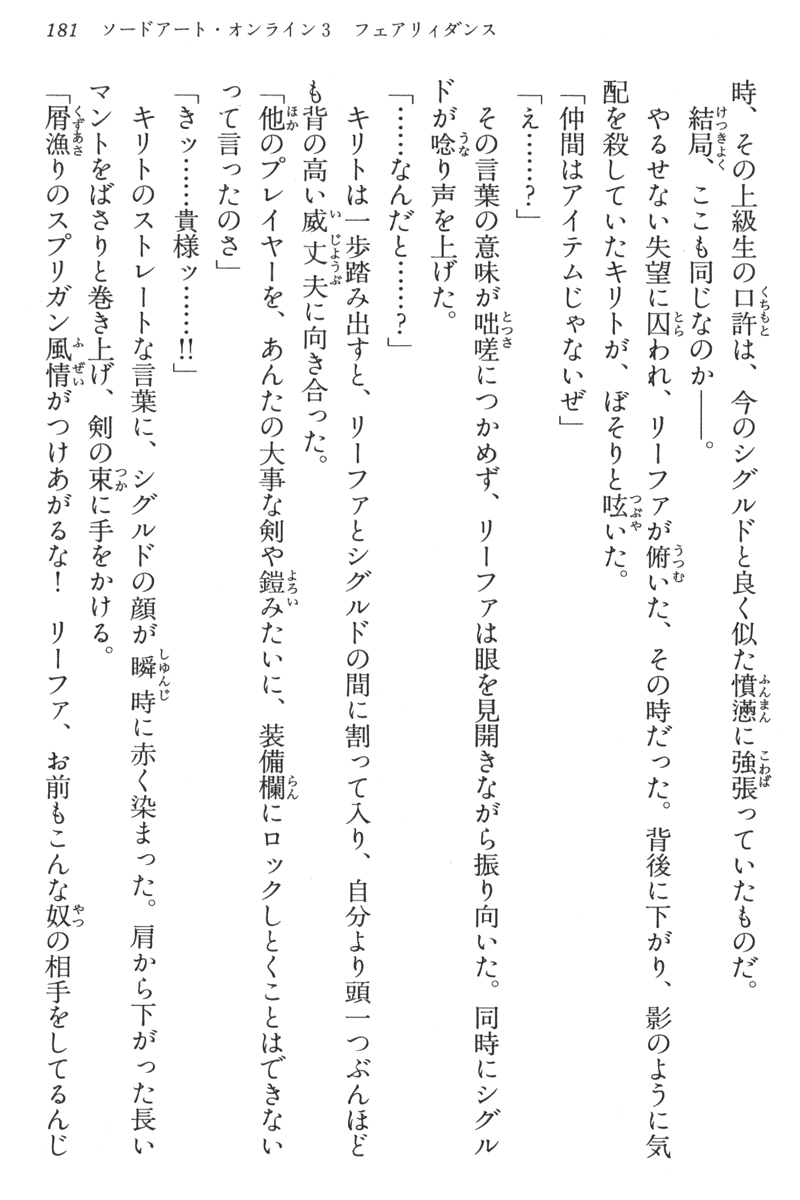 181　ソードアート・オンライン3　フェアリィダンス
時、その上級生の口許は、今のシグルドと良く似た憤懣に強張っていたものだ。
　結局、ここも同じなのか――。
　やるせない失望に囚われ、リーファが俯いた、その時だった。背後に下がり、影のように気
配を殺していたキリトが、ぼそりと呟いた。
「仲間はアイテムじゃないぜ」
「え……？」
　その言葉の意味が咄嗟につかめず、リーファは眼を見開きながら振り向いた。同時にシグル
ドが唸り声を上げた。
「……なんだと……？」
　キリトは一歩踏み出すと、リーファとシグルドの間に割って入り、自分より頭一つぶんほど
も背の高い威丈夫に向き合った。
「他のプレイヤーを、あんたの大事な剣や鎧みたいに、装備欄にロックしとくことはできない
って言ったのさ」
「きッ……貴様ッ……!!」
　キリトのストレートな言葉に、シグルドの顔が瞬時に赤く染まった。肩から下がった長い
マントをばさりと巻き上げ、剣の束に手をかける。
「屑漁りのスプリガン風情がつけあがるな！　リーファ、お前もこんな奴の相手をしてるんじ